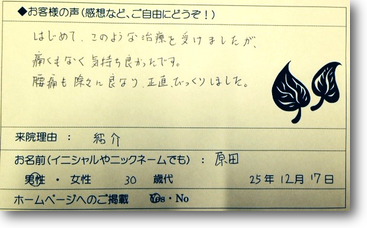 ◆お客様の声(感想など、ご自由にどうぞ!)
はじめて、このような治療を受けましたが、
痛くもなく気持ち良かったです。
腰痛も際々に良なり、正直、びっくりしました。
来院理由: 紹介
お名前(イニシャルやニックネームでも): 原田
男性・女性 30 歳代 25年12月17日
ホームページへのご掲載 Yes・No